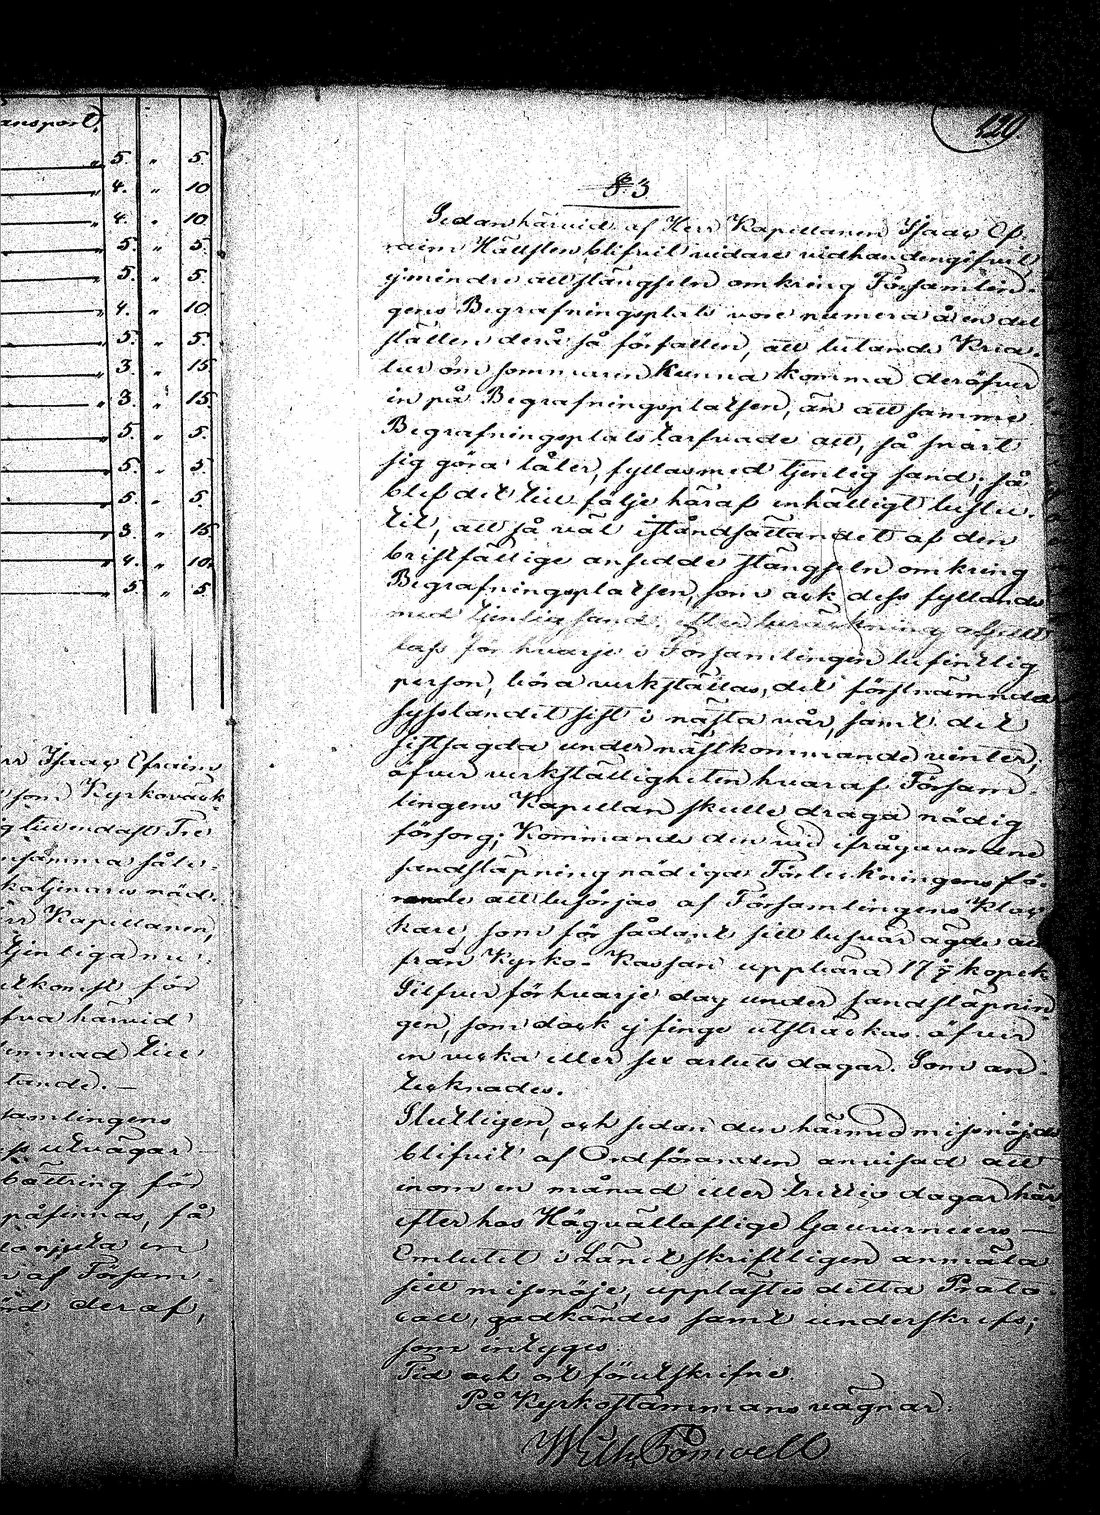 ansport.
5. " 5.
4. " 10
4. " 10.
5. " 5.
5. " 5.
4. " 10.
5. " 5.
3. " 15.
3. " 15.
5. " 5.
5. " 5.
5. " 5.
3. " 15.
4. " 10.
5. " 5.
rr Isaac Efraim
som Kyrkovärk
endast Tre
samma såle-
näd-
rr Kapellanen,
tjenliga
för
fva härvid
lemnad till
tande.—
samlingens
utvägar —
bättring för
påfinnas, så
en
af Försam-
deraf,
420
§ 3
Sedan härvid af Herr Kapellanen Isaac Ef-
raim Hällsten blifvit vidare vidhandengifvit,
ej mindre att stängseln omkring Församlin-
gens Begrafningsplats vore numera å en del
ställen derå så förfallen, att lutande Krea-
tur om sommaren kunna komma deröfver
in på Begrafningsplatsen, än att samme
Begrafningsplats tarfvade att, så snart
sig göra låter, fyllas med tjenlig sand; så
blef det till följe häraf enhälligt beslu-
tit, att så väl iståndsättandet af den
bristfällige ansedde stängseln omkring
Begrafningsplatsen, som ock dess fyllande
med tjenlig sand, efter beräkning af
lass för hvarje i Församlingen befintlig
person, böra verkställas, det förstnämnda
sysslandet sist i nästa vår, samt det
sistsagda under nästkommande vinter;
öfver verkställigheten hvaraf Försam-
lingens Kapellan skulle draga nödig
försorg; Kommande den vid ifrågavordne
sandsläpning nödiga Förteckningens fö-
rande att besörjas af Församlingens Kloc-
kare, som för sådant sitt besvär ägde att
från Kyrko-Kassan uppbära 17 1/7 kopek
Silfver för hvarje dag under sandsläpnin-
gen, som dock ej finge utsträckas öfver
en vecka eller sex arbets dagar. Som an-
tecknades.
Slutligen, och sedan den härmed missnöjde
blifvit af Ordföranden anvisad att
inom en månad eller trettio dagar här
efter hos Högvällaflige Gouverneurs —
Embetet i Länet skriftligen anmäla
sitt missnöje, upplästes detta Proto-
coll, godkändes samt underskrefs;
som intyges.
Tid och ort förutskrifne.
På Kyrkostämmans vägnar: